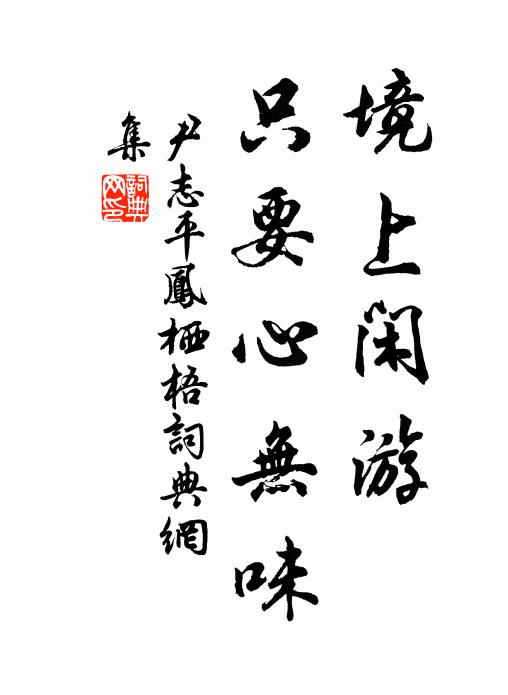 境上閑游
只要心無味
尹志平鳳栖梧詞典網
集
詞典網印